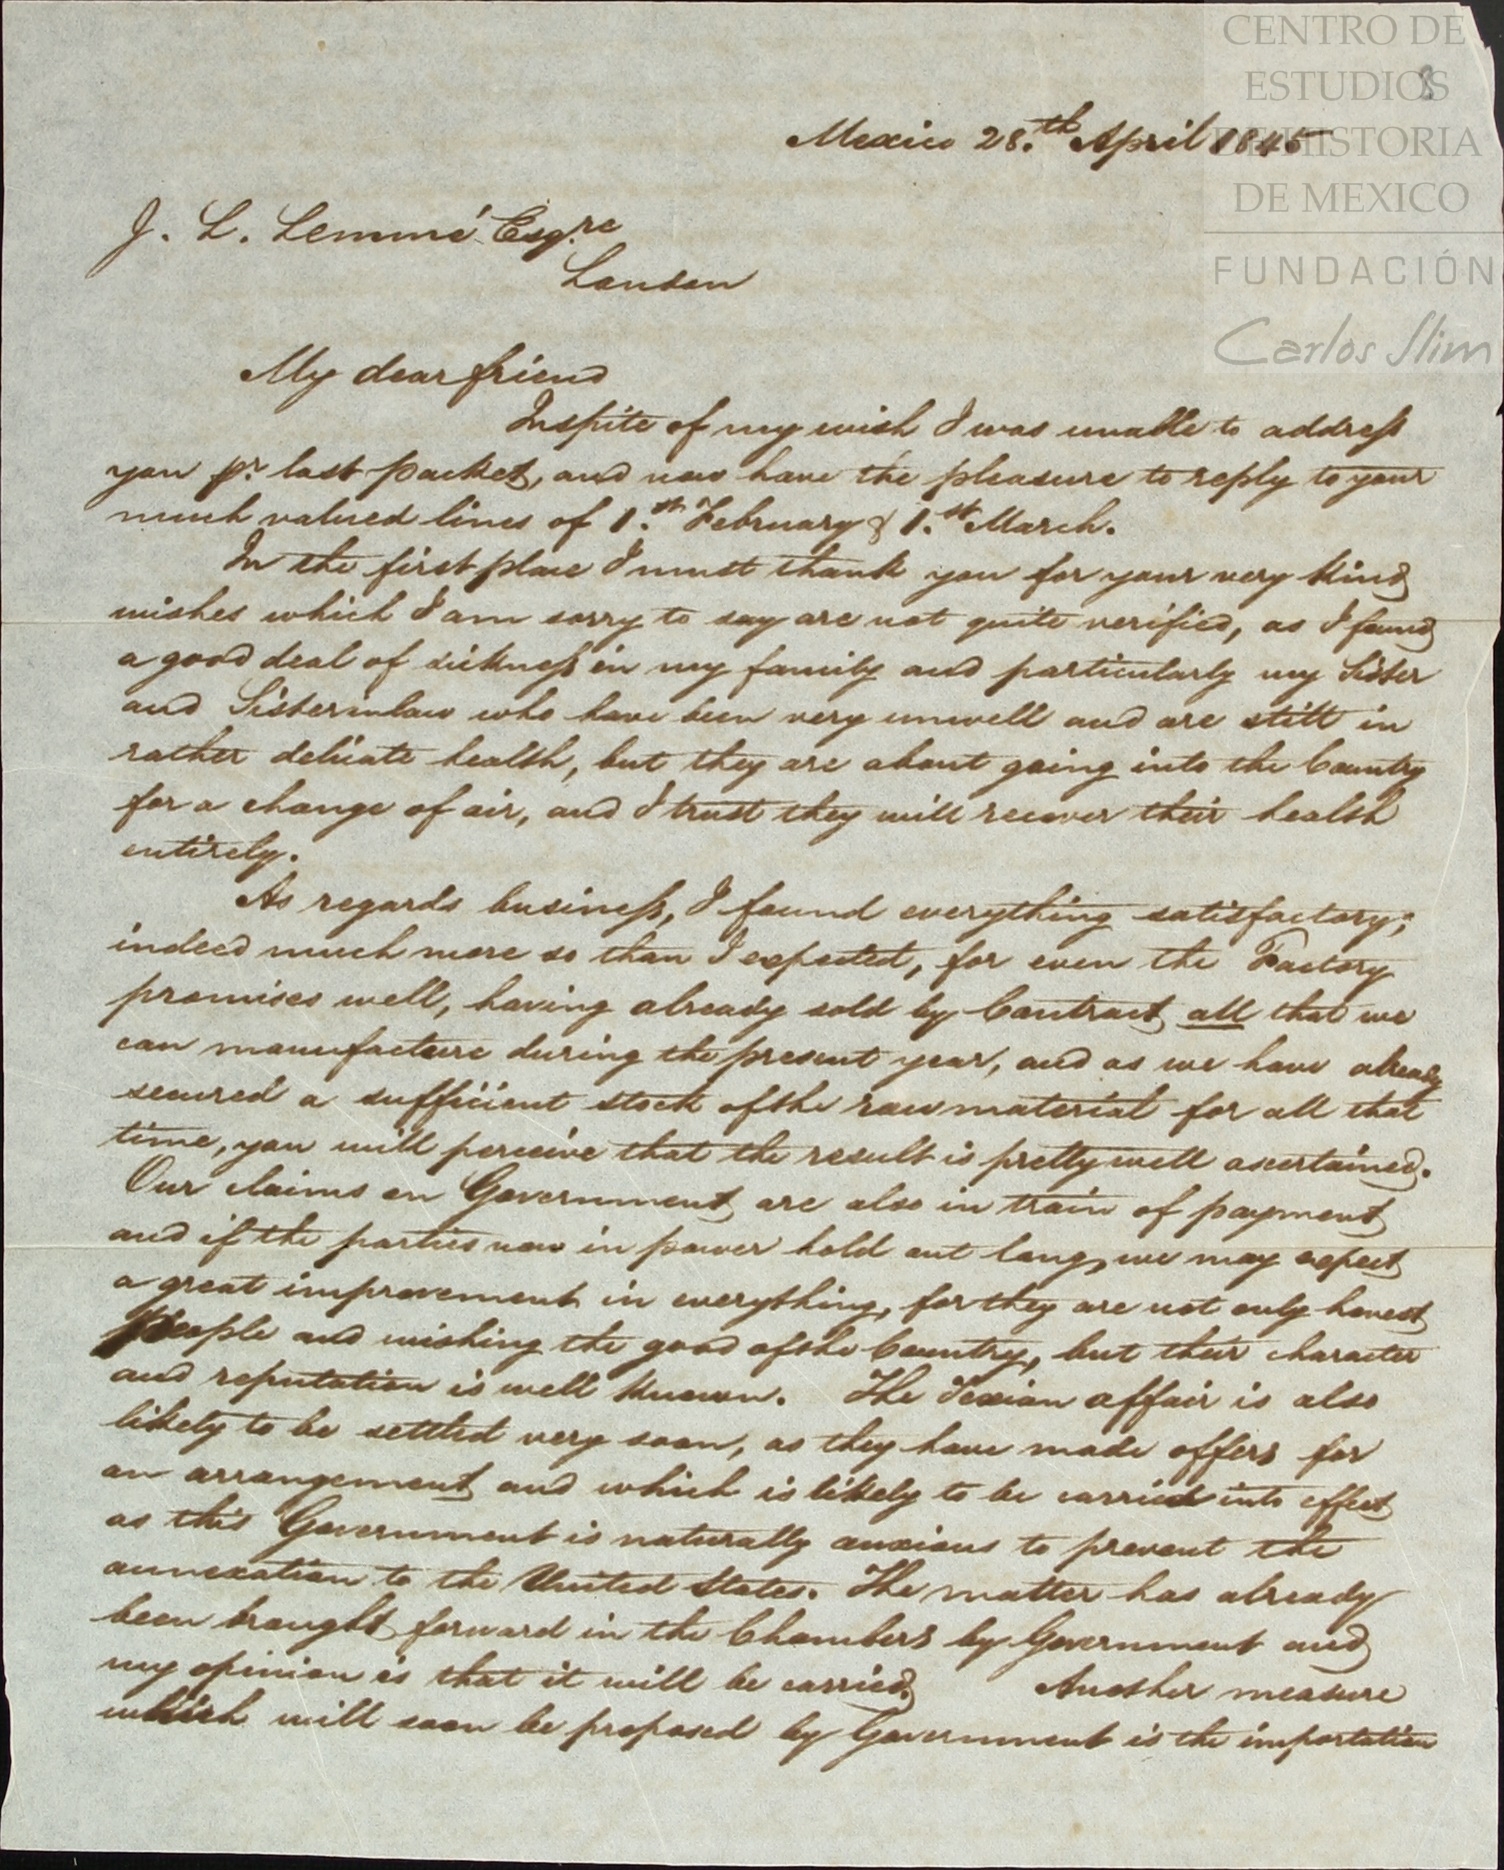 CENTRO DE
ESTUDIOS
DE HISTORIA
DE MEXICO
FUNDACIÓN
Carlos Slim
8
Mexico 28.th April 1845
J. L. Lemmé Esqre
London
My dear friend
Inspite of my wish I was unable to address
you pr. last packet, and now have the pleasure to reply to your
much valued lines of 1.st February & 1.st March.
In the first place I must thank you for your very kind
wishes which I am sorry to say are not quite verified, as I found
a good deal of sickness in my family and particularly my Sister
and Sisterinlaw who have been very unwell and are still in
rather delicate health, but they are about going into the Country
for a change of air, and I trust they will recover their health
entirely.
As regards business, I found everything satisfactory;
indeed much more so than I expected, for even the Factory
promises well, having already sold by Contract all that we
can manufacture during the present year, and as we have already
secured a sufficient stock of the raw material for all that
time, you will perceive that the result is pretty well ascertained.
Our claims on Government are also in train of payment
and if the parties now in power hold out long, we may expect
a great improvement in everything, for they are not only honest
people and wishing the good of the Country, but their character
and reputation is well known. The Texian affair is also
likely to be settled very soon, as they have made offers for
an arrangement and which is likely to be carried into effect
as this Government is naturally anxious to prevent the
annexation to the United States. The matter has already
been brought forward in the Chambers by Government and
my opinion is that it will be carried. Another measure
which will soon be proposed by Government is the importation